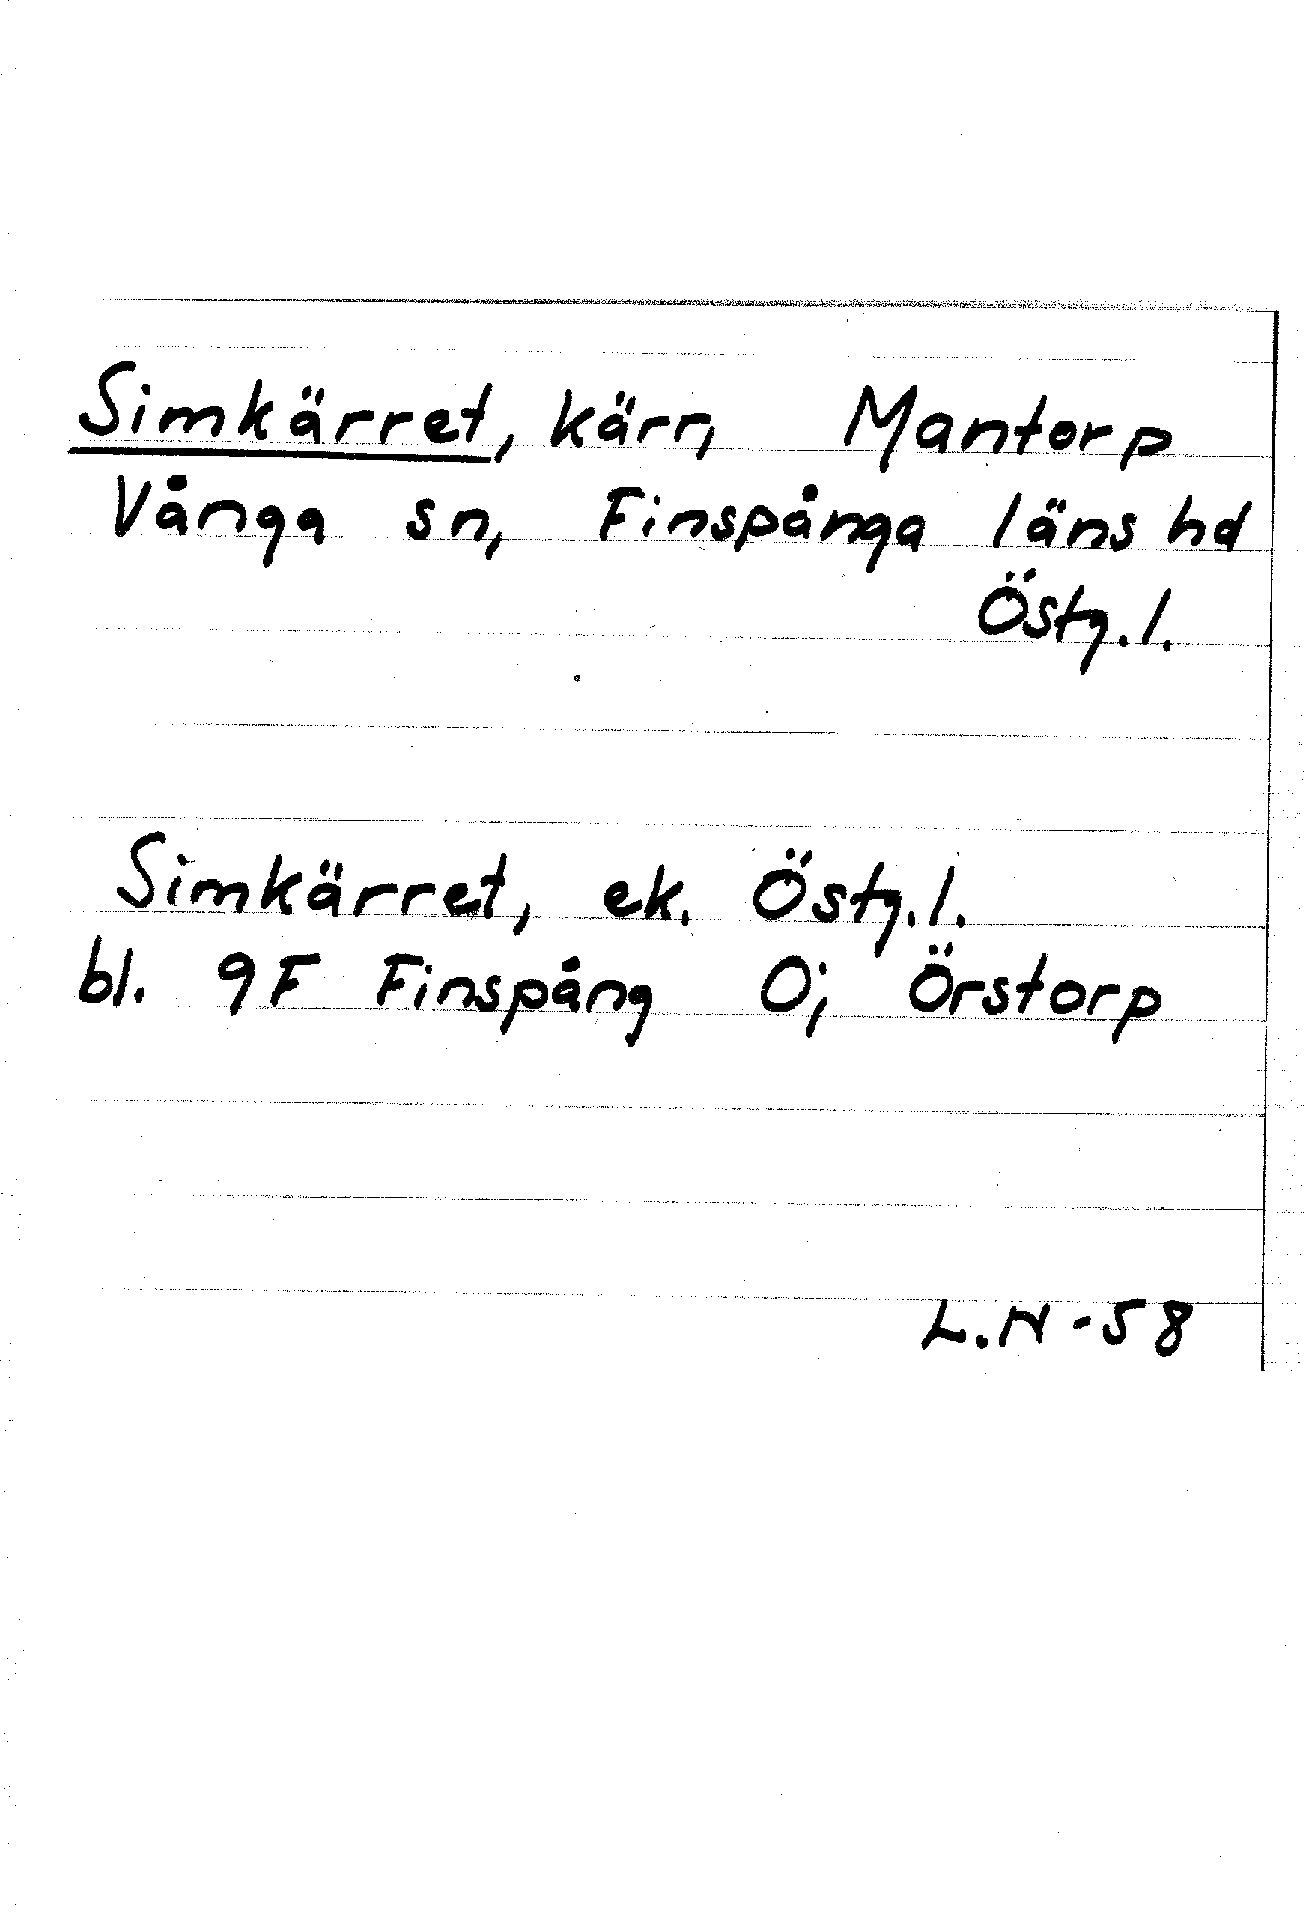 Simkärret, kärr, Mantorp
Vånga sn, Finspånga läns hd
Östg.l.
Simkärret, ek. Östg.l.
bl. 9F Finspång O; Örstorp
L.N-58